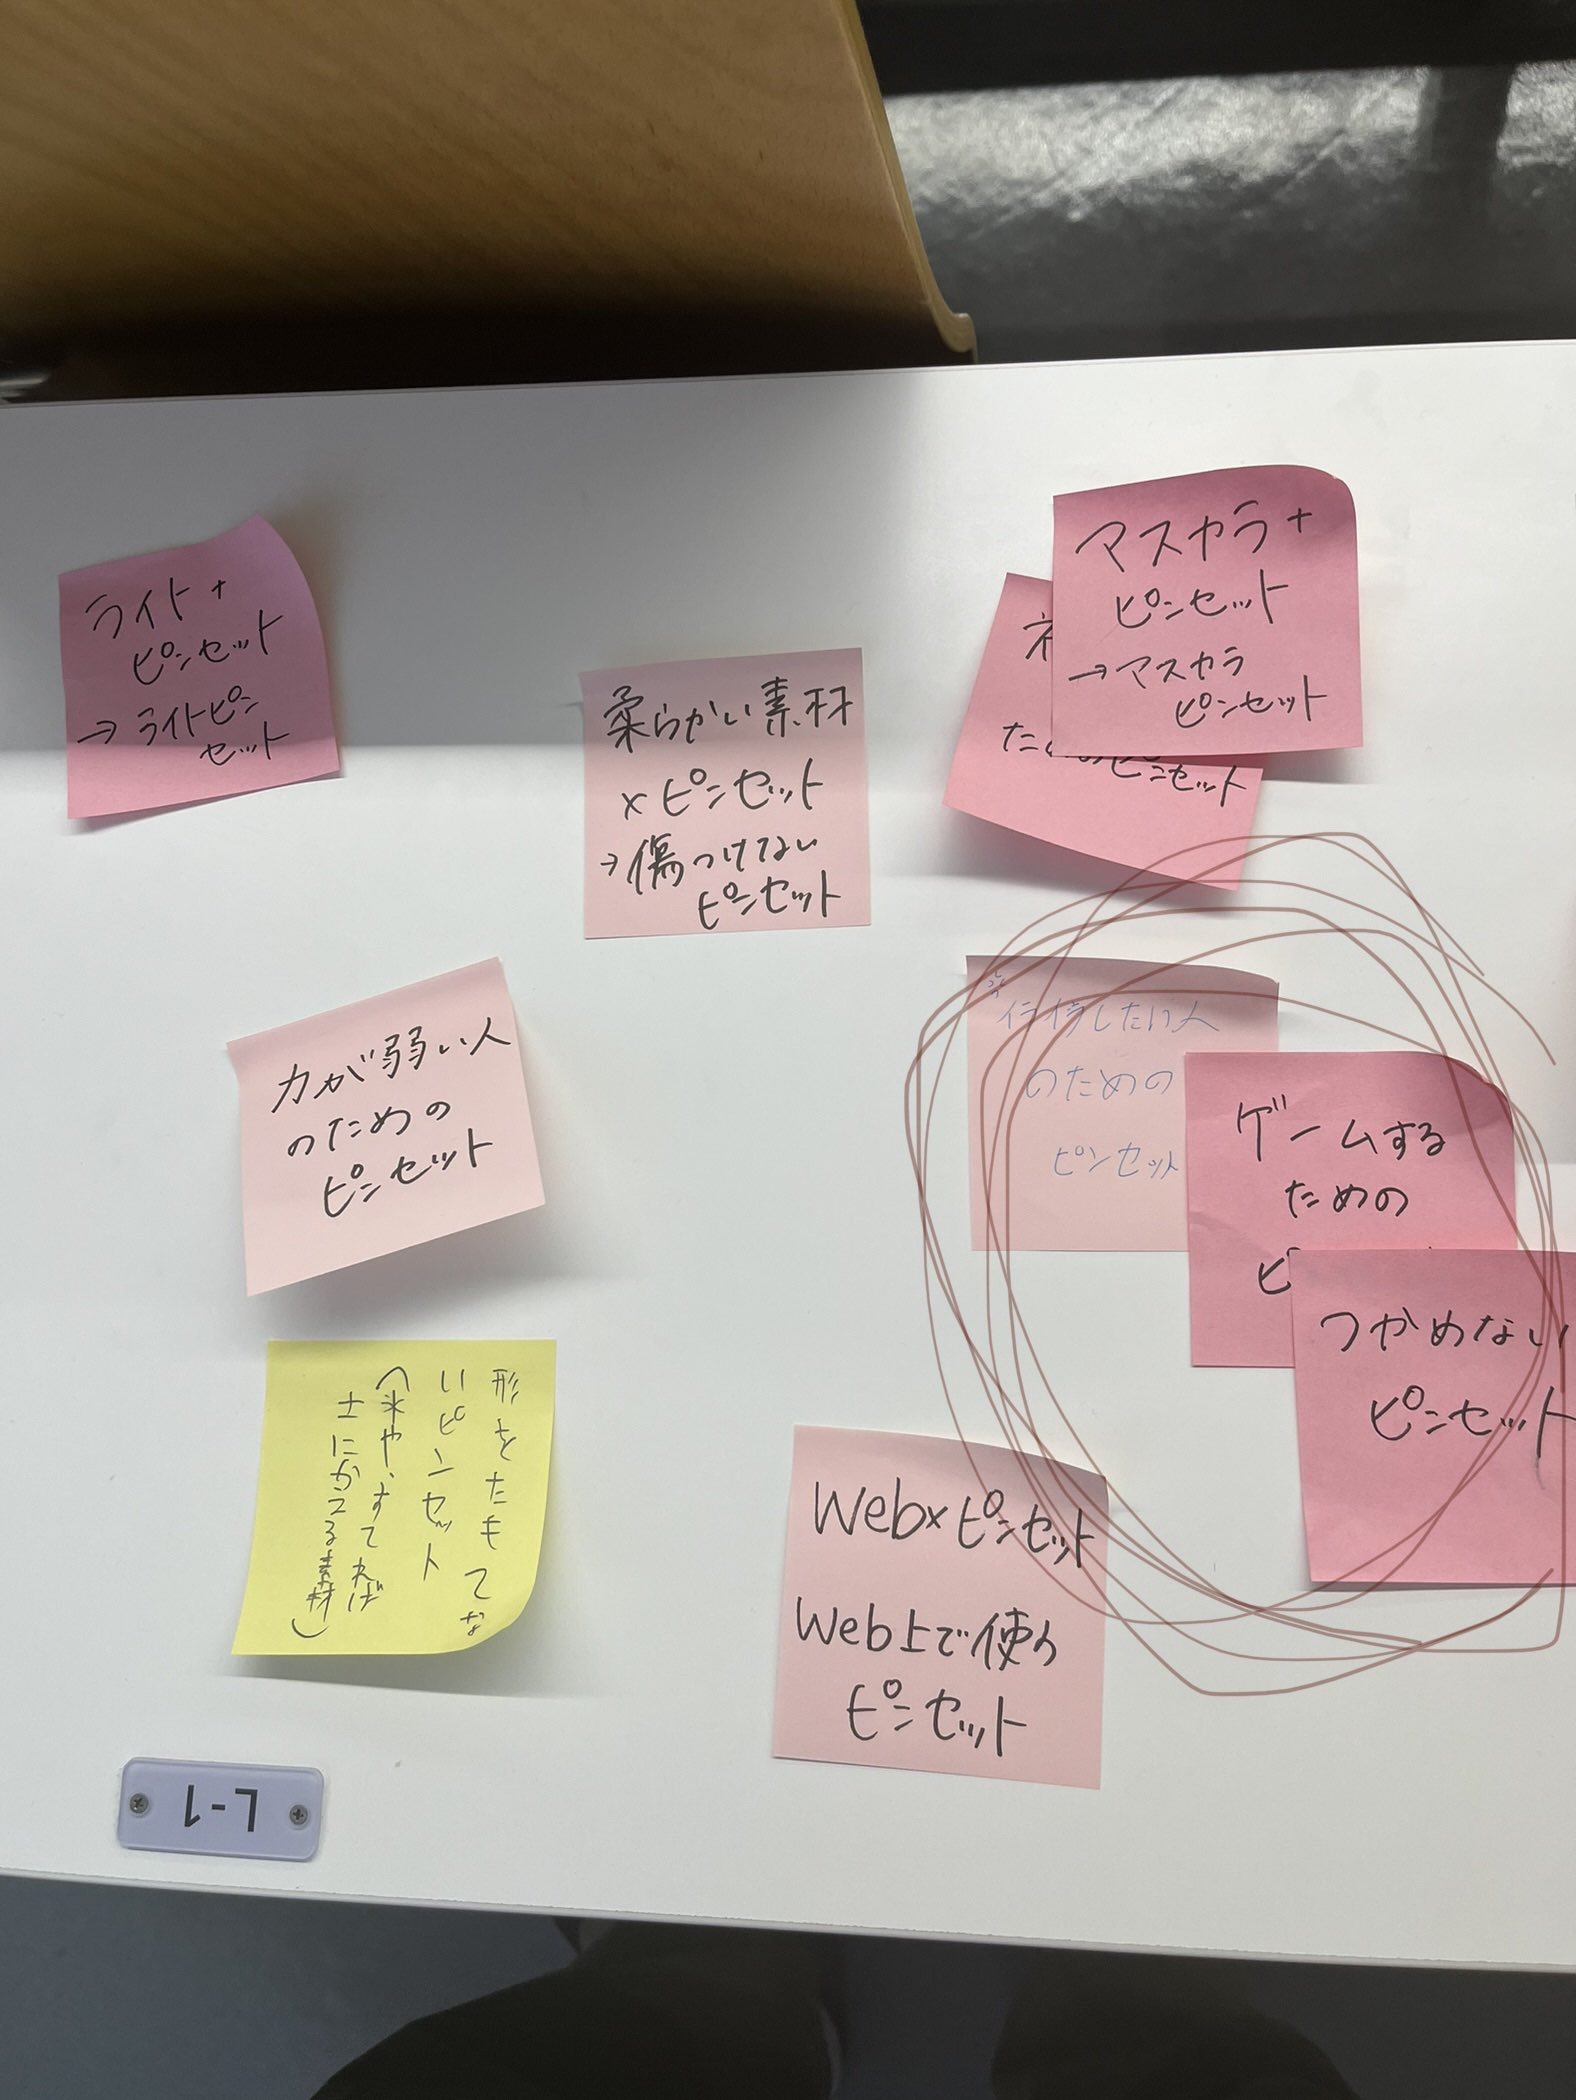 ライト+
ピンセット
→ライトピン
セット
柔らかい素材
×ピンセット
→傷つけない
ピンセット
マスカラ+
ピンセット
→マスカラ
ピンセット
ピンセット
力が弱い人
のための
ピンセット
したい人
のための
ピンセット
ゲームする
ための
ピ
つかめない
ピンセット
形をたもてな
いピンセット
(氷や、すてれば
土にかえる素材)
Web×ピンセット
Web上で使う
ピンセット
L-1